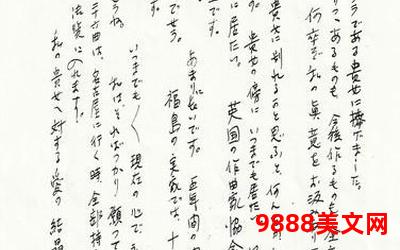 うである貴女に捧げました。
りつゝあるものも、今後作るものも
何卒、私の真意をお汲み
貴女に別れると思ふと、何ん
す。貴女の傍に、いつまでも居た
に居たい。英国の作曲家協会
です。
あまりに長いです。五年間の
でせう。福島の実家では、十
いつまでも〱現在の心で
うね。私はそればつかり願つて
二十六曲は、名古屋に行く時、全部持
法院に入れます。
私の貴女へ対する愛の結晶
9888美文网